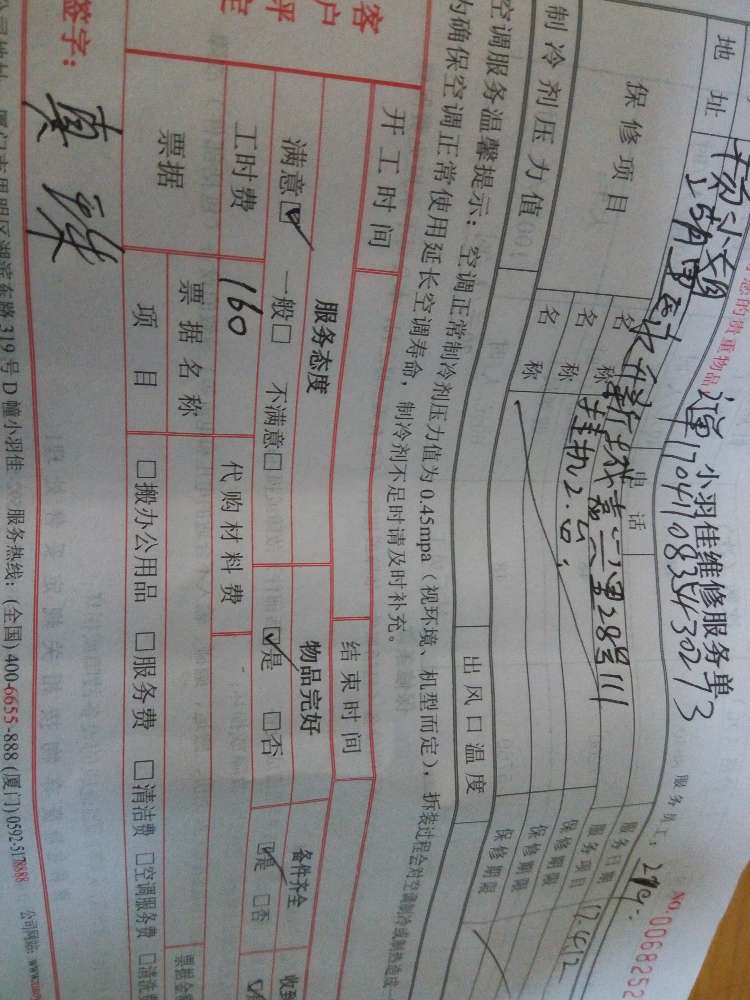 您的贵重物品
小羽佳维修服务单
NO. 0068252
服务员工:
地址
电话
服务日期 17.4.12
保修项目
名称 挂机2.台;
服务项目
名称
保修期限
名称
保修期限
制冷剂压力值
出风口温度
保修期限
空调服务温馨提示:空调正常制冷剂压力值为0.45mpa(视环境、机型而定),拆装过程会对空调制冷或制热造成
为确保空调正常使用延长空调寿命,制冷剂不足时请及时补充。
开工时间
结束时间
客户评定
服务态度
物品完好
备件齐全
收到
满意☑ 一般□ 不满意□
☑是 □否
☑是 □否
工时费 160
代购材料费
票据
票据名称
票据金
项目
□搬办公用品 □服务费 □清洁费 □空调服务费 □清洗
签字:
厦门市思明区湖滨东路319号D幢小羽佳 服务热线:(全国)400-6655-888 (厦门)0592-5178688 公司网站:www.